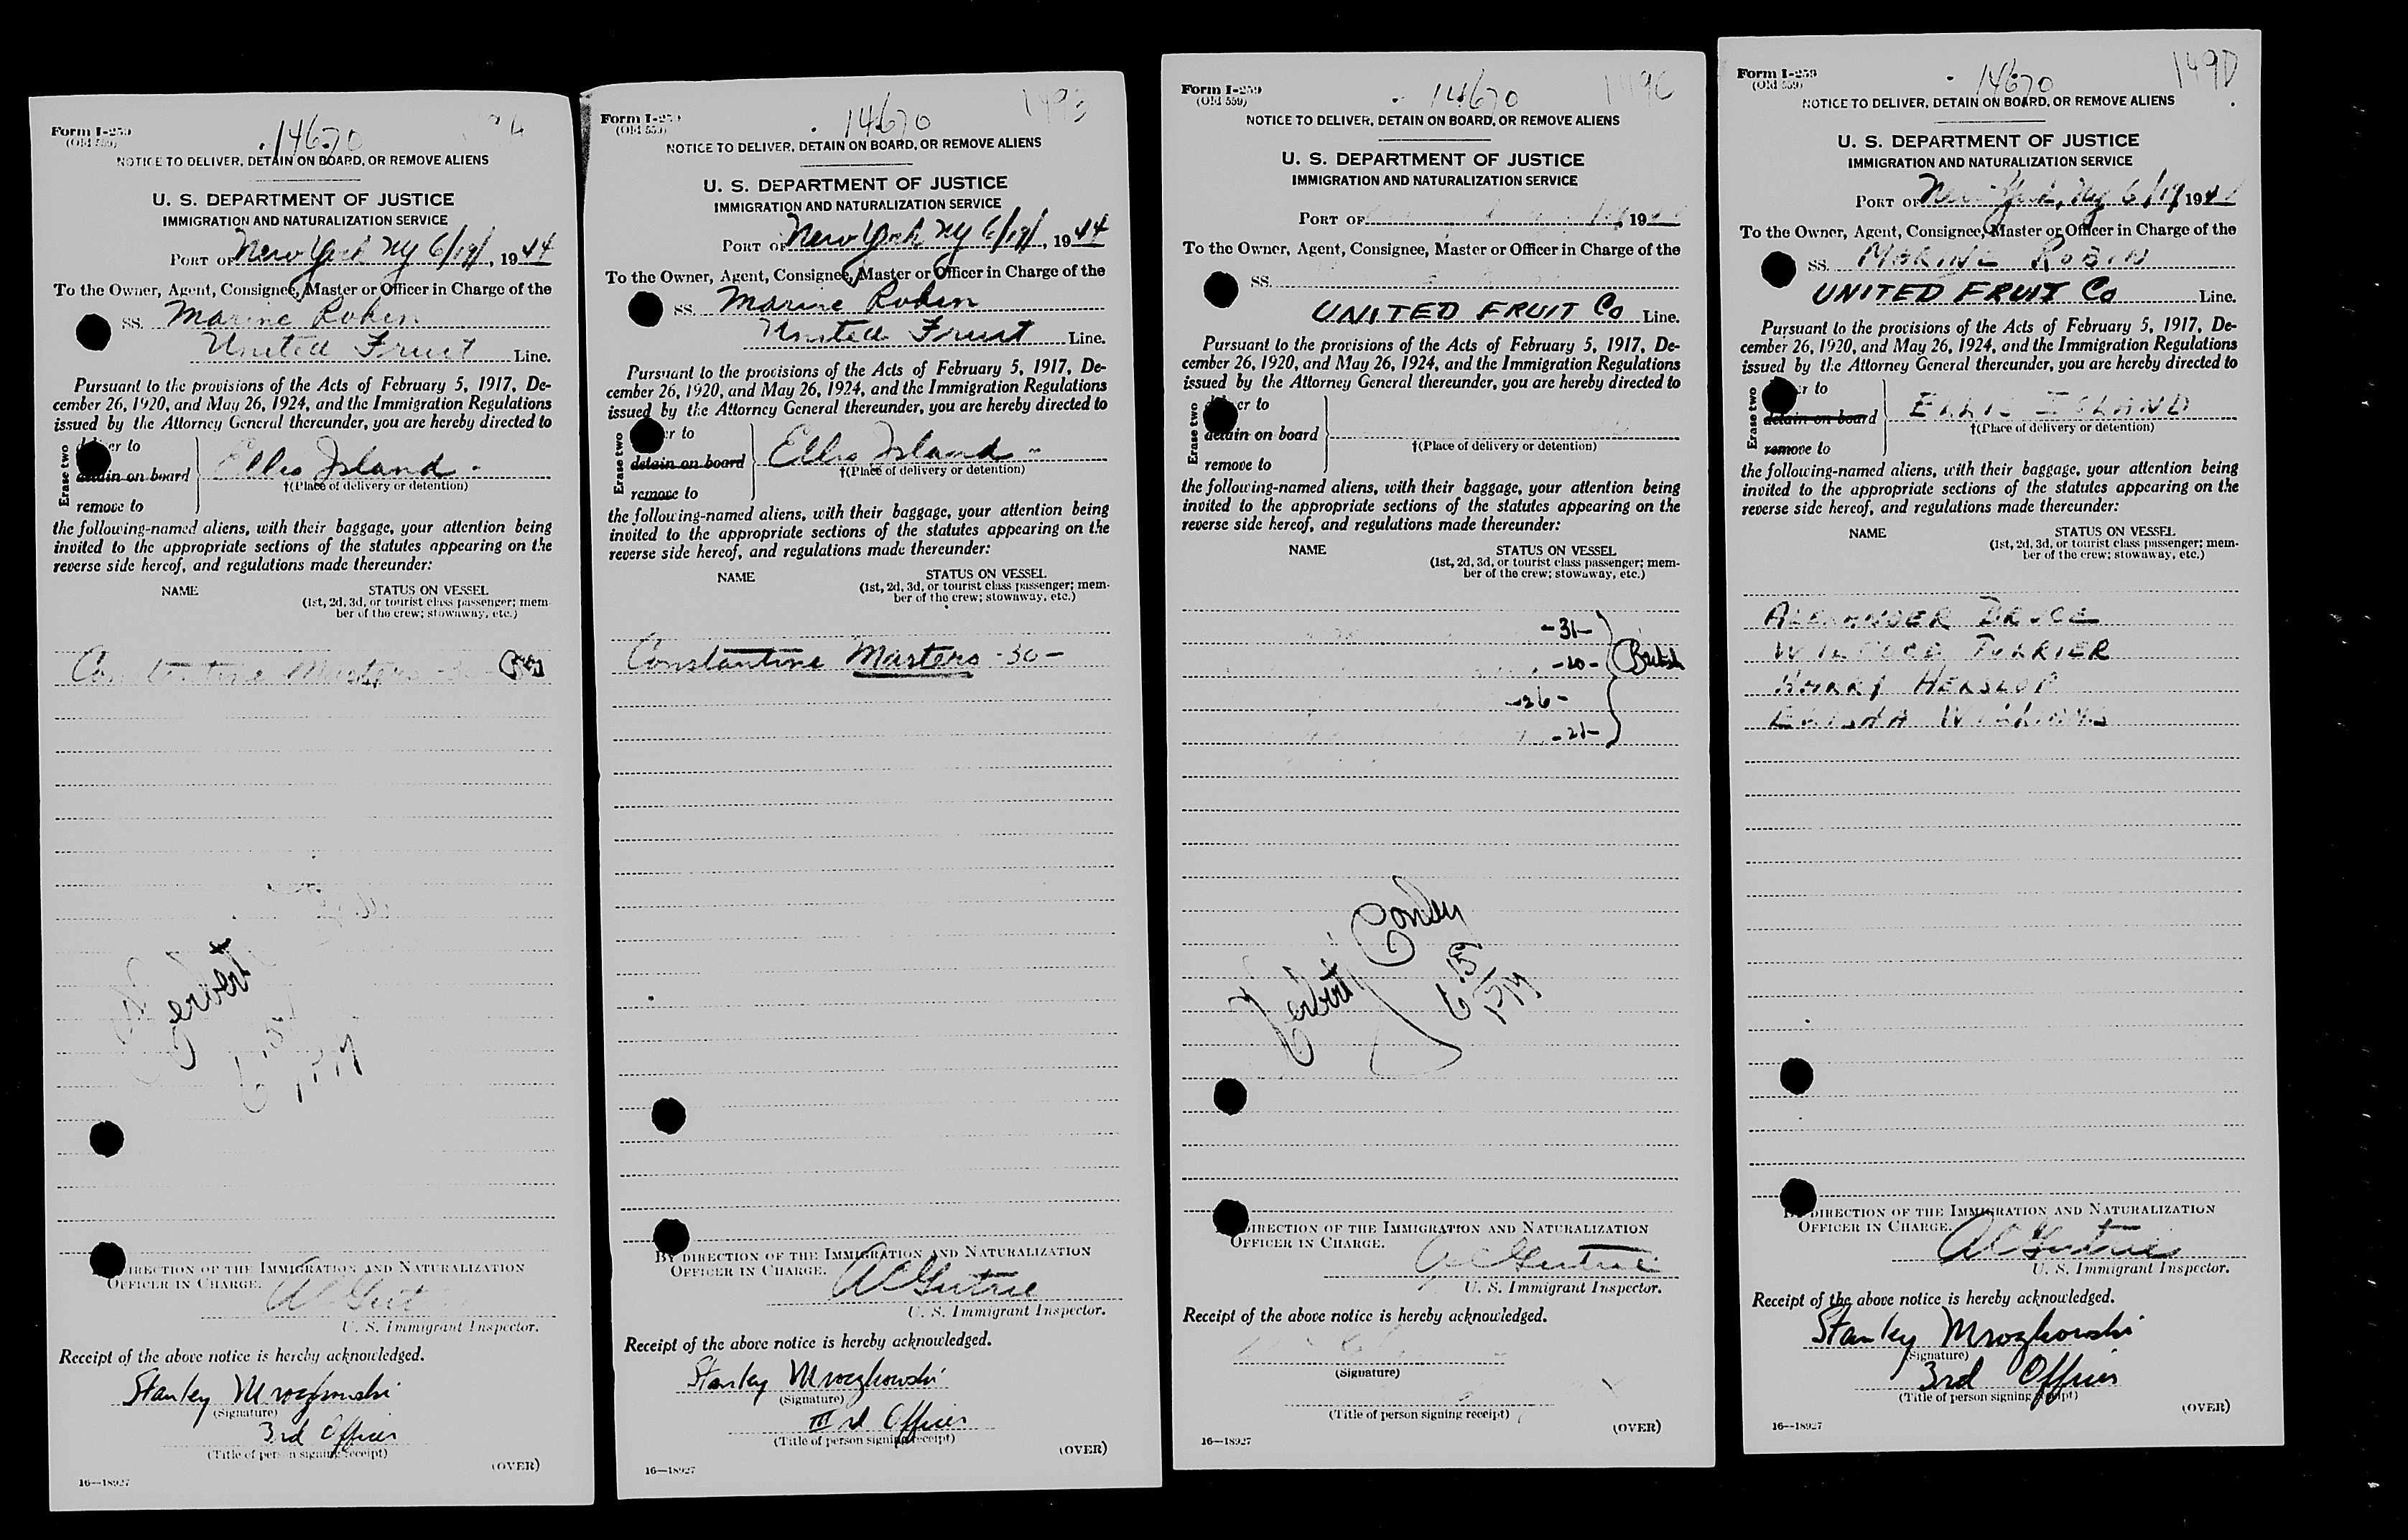 Form I-259
(Old 559)
.14670
NOTICE TO DELIVER, DETAIN ON BOARD, OR REMOVE ALIENS
U. S. DEPARTMENT OF JUSTICE
IMMIGRATION AND NATURALIZATION SERVICE
PORT OF New York NY 6/19/, 1944
To the Owner, Agent, Consignee, Master or Officer in Charge of the
SS. Marine Robin
United Fruit Line.
Pursuant to the provisions of the Acts of February 5, 1917, De-
cember 26, 1920, and May 26, 1924, and the Immigration Regulations
issued by the Attorney General thereunder, you are hereby directed to
Erase two
er to
detain on board
Ellis Island -
†(Place of delivery or detention)
remove to
the following-named aliens, with their baggage, your attention being
invited to the appropriate sections of the statutes appearing on the
reverse side hereof, and regulations made thereunder:
NAME STATUS ON VESSEL
(1st, 2d, 3d, or tourist class passenger; mem-
ber of the crew; stowaway, etc.)
Constantine Masters
Herbert
6 15
PM
DIRECTION OF THE IMMIGRATION AND NATURALIZATION
OFFICER IN CHARGE.
U. S. Immigrant Inspector.
Receipt of the above notice is hereby acknowledged.
Stanley Mrozkowski
(Signature)
3rd Officer
(Title of person signing receipt)
(OVER)
16—18927
Form I-259
(Old 559)
. 14670
149B
NOTICE TO DELIVER, DETAIN ON BOARD, OR REMOVE ALIENS
U. S. DEPARTMENT OF JUSTICE
IMMIGRATION AND NATURALIZATION SERVICE
PORT OF New York NY 6/19/, 1944
To the Owner, Agent, Consignee, Master or Officer in Charge of the
SS. Marine Robin
United Fruit Line.
Pursuant to the provisions of the Acts of February 5, 1917, De-
cember 26, 1920, and May 26, 1924, and the Immigration Regulations
issued by the Attorney General thereunder, you are hereby directed to
Erase two
er to
detain on board
Ellis Island -
†(Place of delivery or detention)
remove to
the following-named aliens, with their baggage, your attention being
invited to the appropriate sections of the statutes appearing on the
reverse side hereof, and regulations made thereunder:
NAME STATUS ON VESSEL
(1st, 2d, 3d, or tourist class passenger; mem-
ber of the crew; stowaway, etc.)
Constantine Masters -30-
BY DIRECTION OF THE IMMIGRATION AND NATURALIZATION
OFFICER IN CHARGE.
AC Gutrie
U. S. Immigrant Inspector.
Receipt of the above notice is hereby acknowledged.
Stanley Mrozkowski
(Signature)
IIIrd Officer
(Title of person signing receipt)
(OVER)
16—18927
Form I-259
(Old 559)
. 14670
149C
NOTICE TO DELIVER, DETAIN ON BOARD, OR REMOVE ALIENS
U. S. DEPARTMENT OF JUSTICE
IMMIGRATION AND NATURALIZATION SERVICE
PORT OF 19
To the Owner, Agent, Consignee, Master or Officer in Charge of the
SS.
UNITED FRUIT Co Line.
Pursuant to the provisions of the Acts of February 5, 1917, De-
cember 26, 1920, and May 26, 1924, and the Immigration Regulations
issued by the Attorney General thereunder, you are hereby directed to
Erase two
er to
detain on board
†(Place of delivery or detention)
remove to
the following-named aliens, with their baggage, your attention being
invited to the appropriate sections of the statutes appearing on the
reverse side hereof, and regulations made thereunder:
NAME STATUS ON VESSEL
(1st, 2d, 3d, or tourist class passenger; mem-
ber of the crew; stowaway, etc.)
-31-
-20- British
-26-
-21-
Herbert Conley
6 15
PM
DIRECTION OF THE IMMIGRATION AND NATURALIZATION
OFFICER IN CHARGE.
AC Gutrie
U. S. Immigrant Inspector.
Receipt of the above notice is hereby acknowledged.
(Signature)
(Title of person signing receipt)
(OVER)
16—18927
Form I-259
(Old 559)
. 14670
149D
NOTICE TO DELIVER, DETAIN ON BOARD, OR REMOVE ALIENS
U. S. DEPARTMENT OF JUSTICE
IMMIGRATION AND NATURALIZATION SERVICE
PORT OF New York, NY 6/19/ 194
To the Owner, Agent, Consignee, Master or Officer in Charge of the
SS. MARINE ROBIN
UNITED FRUIT Co Line.
Pursuant to the provisions of the Acts of February 5, 1917, De-
cember 26, 1920, and May 26, 1924, and the Immigration Regulations
issued by the Attorney General thereunder, you are hereby directed to
Erase two
er to
detain on board
ELLIS ISLAND
†(Place of delivery or detention)
remove to
the following-named aliens, with their baggage, your attention being
invited to the appropriate sections of the statutes appearing on the
reverse side hereof, and regulations made thereunder:
NAME STATUS ON VESSEL
(1st, 2d, 3d, or tourist class passenger; mem-
ber of the crew; stowaway, etc.)
ALEXANDER BRUCE
HARRY HEASLOP
WILLIAMS
BY DIRECTION OF THE IMMIGRATION AND NATURALIZATION
OFFICER IN CHARGE.
AC Gutrie
U. S. Immigrant Inspector.
Receipt of the above notice is hereby acknowledged.
Stanley Mrozkowski
(Signature)
3rd Officer
(Title of person signing receipt)
(OVER)
16—18927